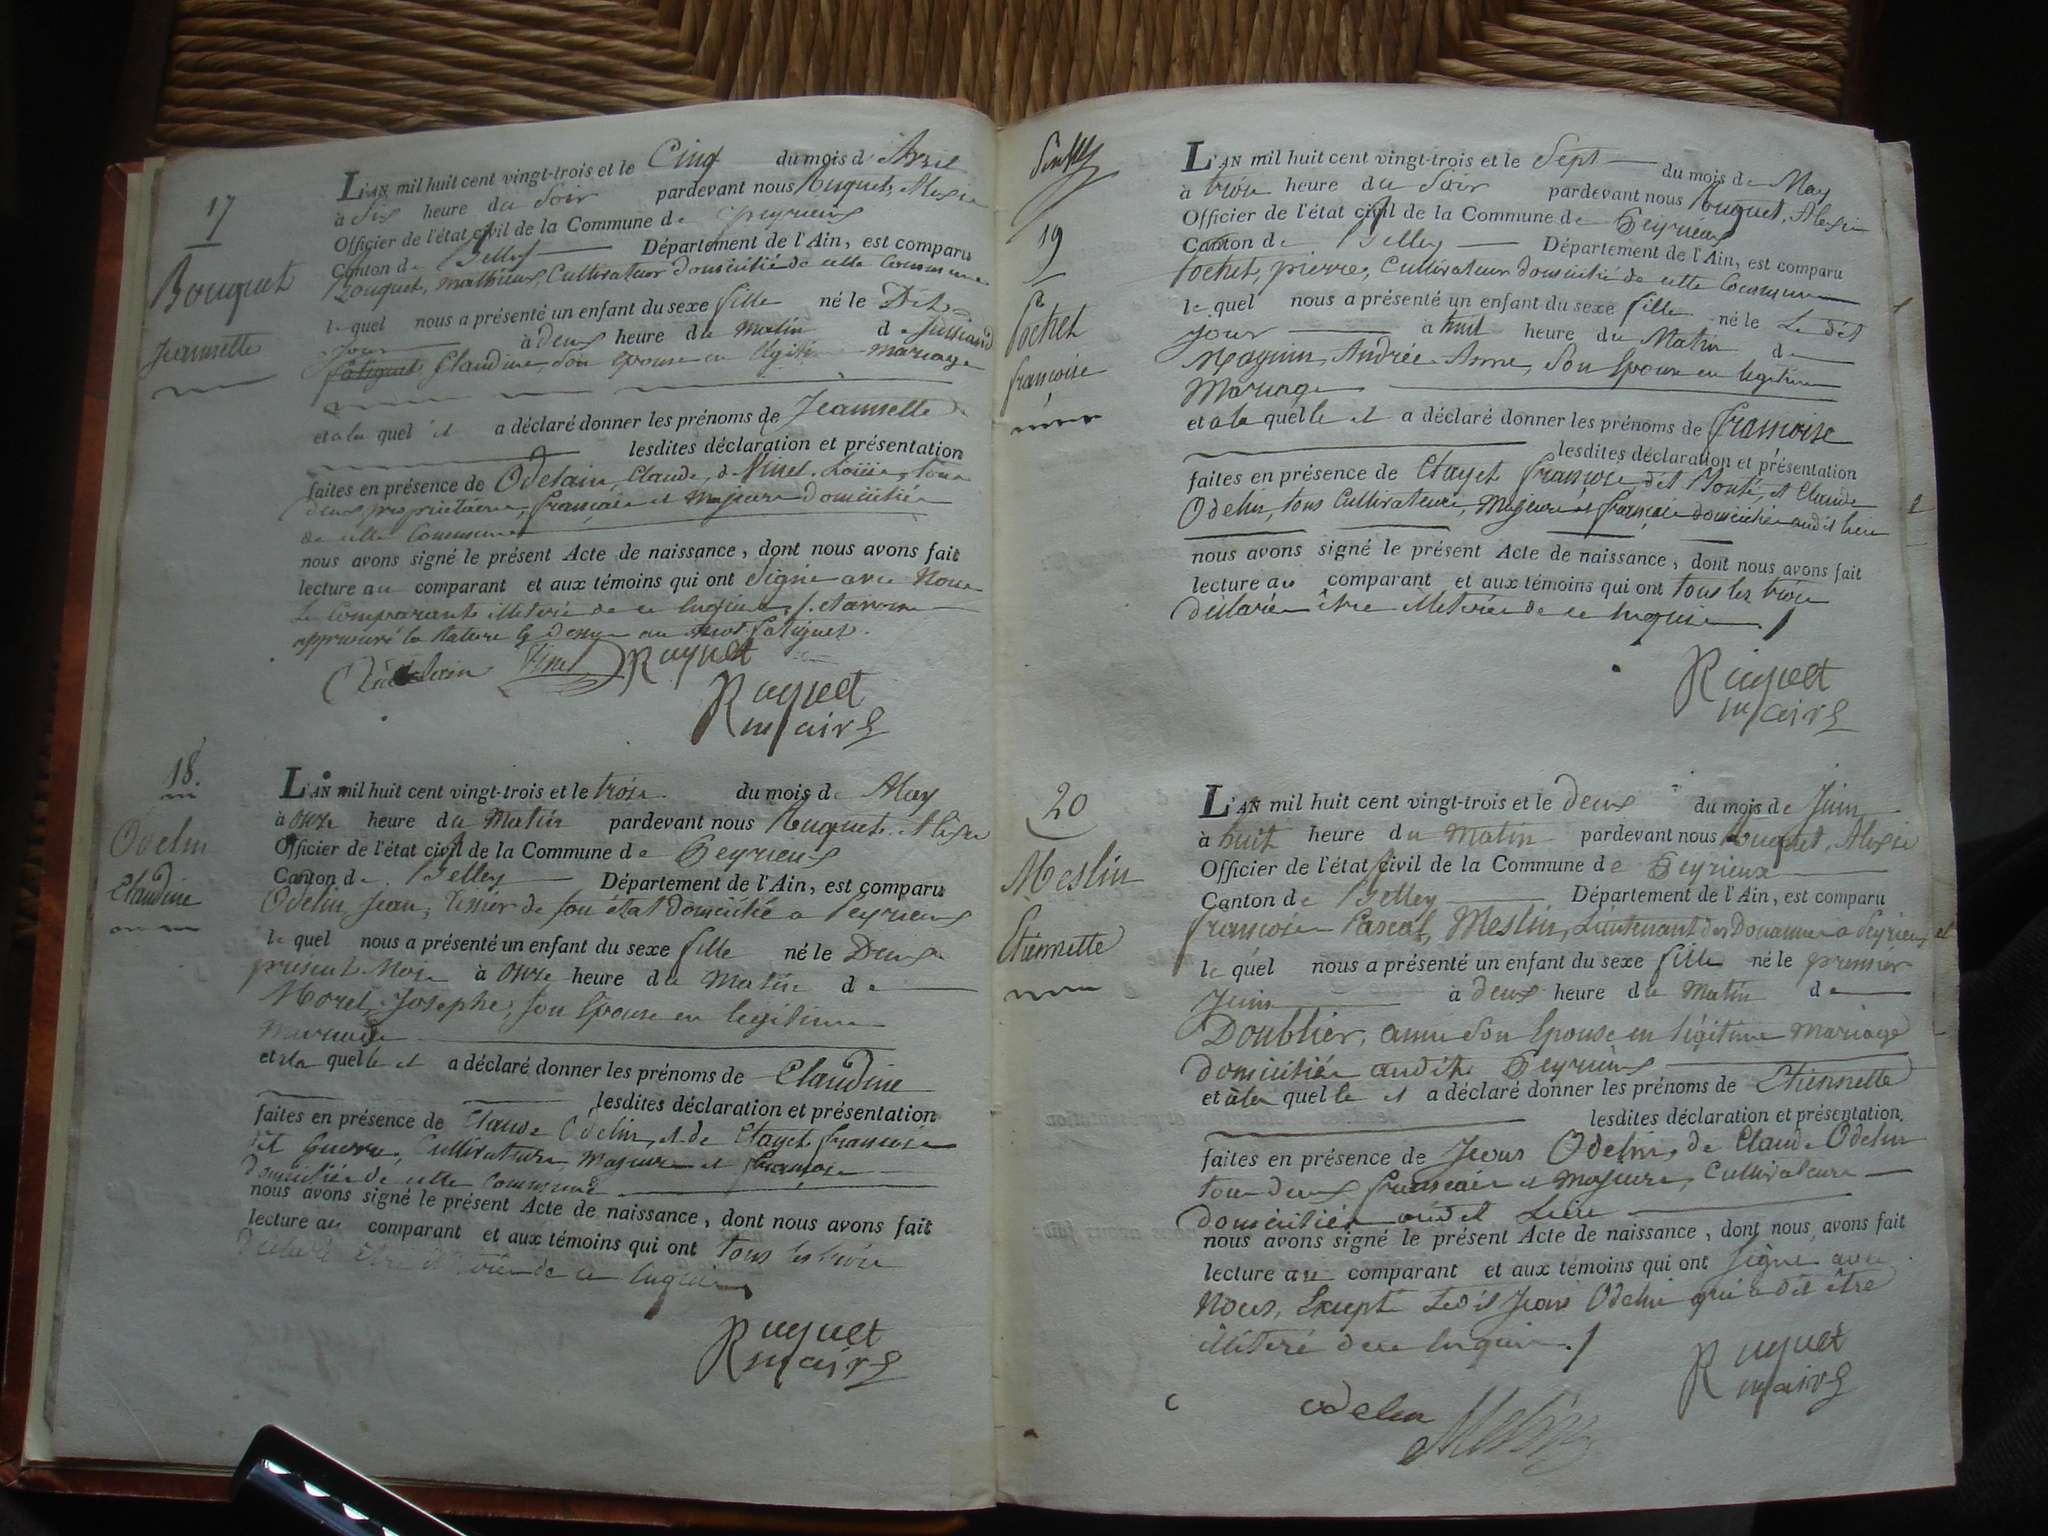 17
Bouquet
Jeannette
L'AN mil huit cent vingt-trois et le Cinq du mois d'Avril
à Six heure du Soir pardevant nous Ruquet, Alexis
Officier de l'état civil de la Commune de Peyrieux
Canton de Belley Département de l'Ain, est comparu
Bouquet, mathieux, Cultivateur domicilié de cette Commune
le quel nous a présenté un enfant du sexe fille né le Dit
Jour à deux heure du Matin de
Claudine, Son epouse en légitime mariage
et a la quel il a déclaré donner les prénoms de Jeannette
lesdites déclaration et présentation
faites en présence de Odelain, Claude, & Vinet, Louis, tous
deux propriétaires, français et Majeurs domiciliés
de cette Commune
nous avons signé le présent Acte de naissance, dont nous avons fait
lecture au comparant et aux témoins qui ont Signé avec Nous
Le Comparant illiteré de ce Inquise
approuvé la Rature au mot
Vinet Ruquet
Ruquet
maire
18
Odelin
Claudine
L'AN mil huit cent vingt-trois et le trois du mois de May
à onze heure du Matin pardevant nous Ruquet, Alexis
Officier de l'état civil de la Commune de Peyrieux
Canton de Belley Département de l'Ain, est comparu
Odelin, Jean, de son état domicilié a Peyrieux
le quel nous a présenté un enfant du sexe fille né le Deux
présent Mois à onze heure du Matin de
Morel, Josephe, son Epouse en légitime
Mariage
et a la quelle il a déclaré donner les prénoms de Claudine
lesdites déclaration et présentation
faites en présence de Claude Odelin, et de Clayet françois
dit Guerre, Cultivateurs Majeurs et français
domiciliés de cette Commune
nous avons signé le présent Acte de naissance, dont nous avons fait
lecture au comparant et aux témoins qui ont tous les trois
déclaré être de ce Inquis
Ruquet
maire
19
Pochet
françoise
L'AN mil huit cent vingt-trois et le Sept du mois de May
à trois heure du Soir pardevant nous Ruquet, Alexis
Officier de l'état civil de la Commune de Peyrieux
Canton de Belley Département de l'Ain, est comparu
Pochet, pierre, Cultivateur domicilié de cette Commune
le quel nous a présenté un enfant du sexe fille né le Le dit
Jour à huit heure du Matin de
Magnin, Andrée Anne, Son Epouse en légitime
Mariage
et a la quelle il a déclaré donner les prénoms de françoise
lesdites déclaration et présentation
faites en présence de Clayet françois dit et Claude
Odelin, tous Cultivateurs, Majeurs et français domiciliés audit lieu
nous avons signé le présent Acte de naissance, dont nous avons fait
lecture au comparant et aux témoins qui ont tous les trois
déclarés être illiterés de ce Inquis
Ruquet
maire
20
Meslin
Etiennette
L'AN mil huit cent vingt-trois et le deux du mois de Juin
à huit heure du Matin pardevant nous Ruquet, Alexis
Officier de l'état civil de la Commune de Peyrieux
Canton de Belley Département de l'Ain, est comparu
françois Pascal, Meslin, Lieutenant des Douannes a Peyrieux
le quel nous a présenté un enfant du sexe fille né le premier
Juin à deux heure du Matin de
Doublier, anne Son Epouse en légitime Mariage
domiciliés audit Peyrieux
et a la quelle il a déclaré donner les prénoms de Etiennette
lesdites déclaration et présentation
faites en présence de Jeans Odelin, de Claude Odelin
tous deux français et Majeurs, Cultivateurs
domiciliés audit Lieu
nous avons signé le présent Acte de naissance, dont nous avons fait
lecture au comparant et aux témoins qui ont Signé avec
Nous, Excepté Ledit Jeans Odelin qui a dit être
illiteré de ce Inquis
Ruquet
maire
odelin Meslin